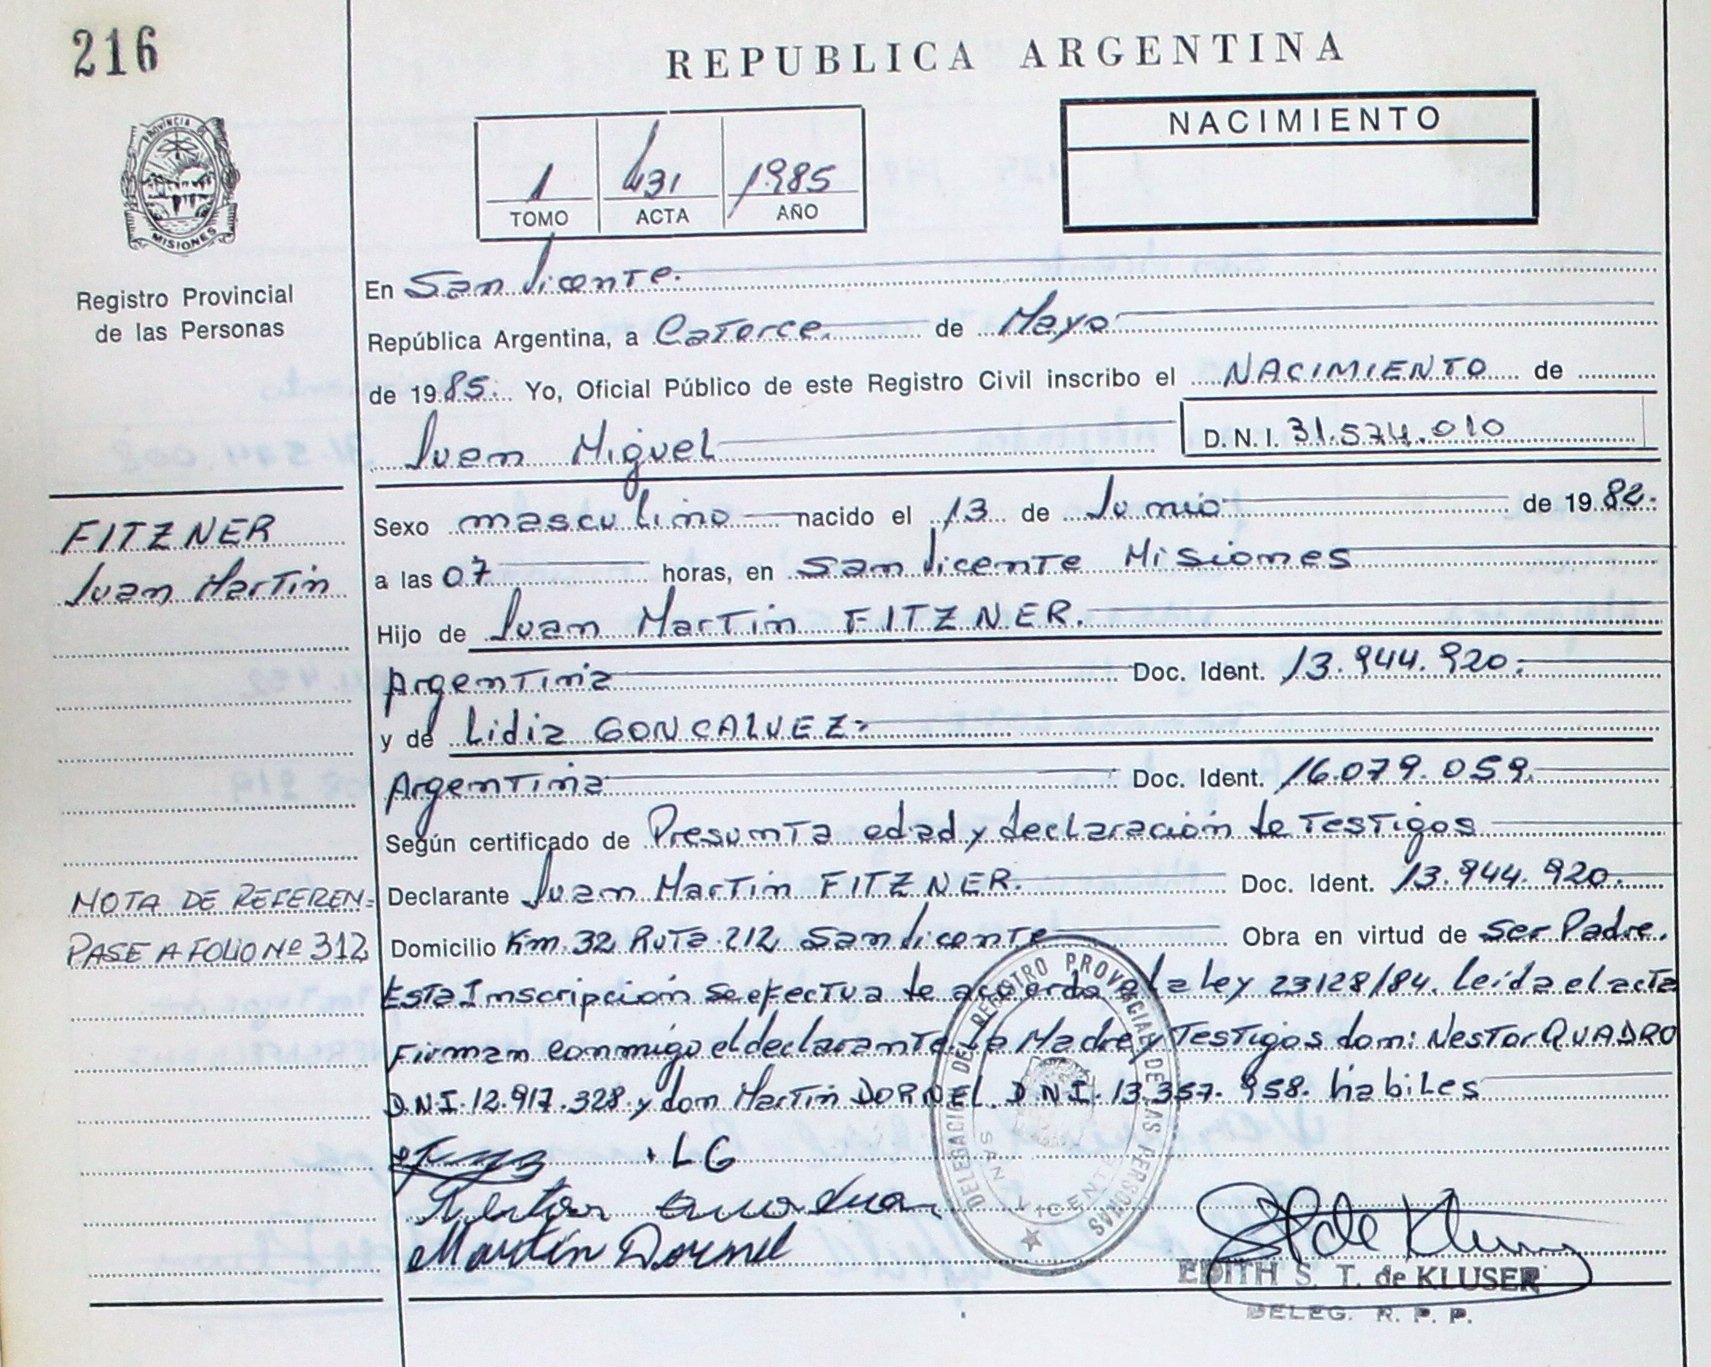 216
REPUBLICA ARGENTINA
PROVINCIA DE
MISIONES
Registro Provincial
de las Personas
1 431 1985
TOMO ACTA AÑO
NACIMIENTO
En San Vicente.
República Argentina, a Catorce. de Mayo
de 1985. Yo, Oficial Público de este Registro Civil inscribo el NACIMIENTO de
Juan Miguel D.N.I. 31.574.010
FITZNER
Juan Martin
Sexo masculino nacido el 13 de Junio de 1982.
a las 07 horas, en San Vicente Misiones
Hijo de Juan Martin FITZNER.
Argentina Doc. Ident. 13.944.920.
y de Lidia GONCALVEZ
Argentina Doc. Ident. 16.079.059.
Según certificado de Presunta edad y declaración de Testigos
Declarante Juan Martin FITZNER. Doc. Ident. 13.944.920.
Domicilio Km. 32 Ruta 212 San Vicente Obra en virtud de Ser Padre.
NOTA DE REFEREN=
PASE A FOLIO Nº 312
Esta Inscripción se efectua de acuerdo a la ley 23128/84. Leída el acta
Firman conmigo el declarante, La Madre y Testigos don: Nestor QUADRO
D.N.I. 12.917.328 y don Martin DORNEL. D.N.I. 13.357.958. habiles
. LG
Martin Dornel
DELEGACION DEL REGISTRO PROVINCIAL DE LAS PERSONAS
SAN VICENTE
EDITH S. T. de KLUSER
DELEG. R. P. P.